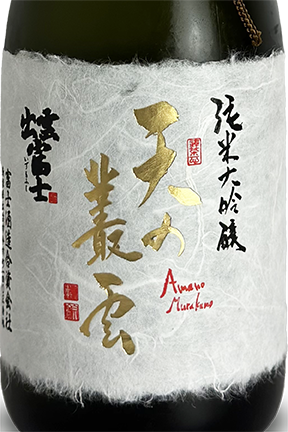 純米大吟醸
天の
叢雲
Amano
Murakumo
出雲富士
いずもふじ
富士酒造合資会社